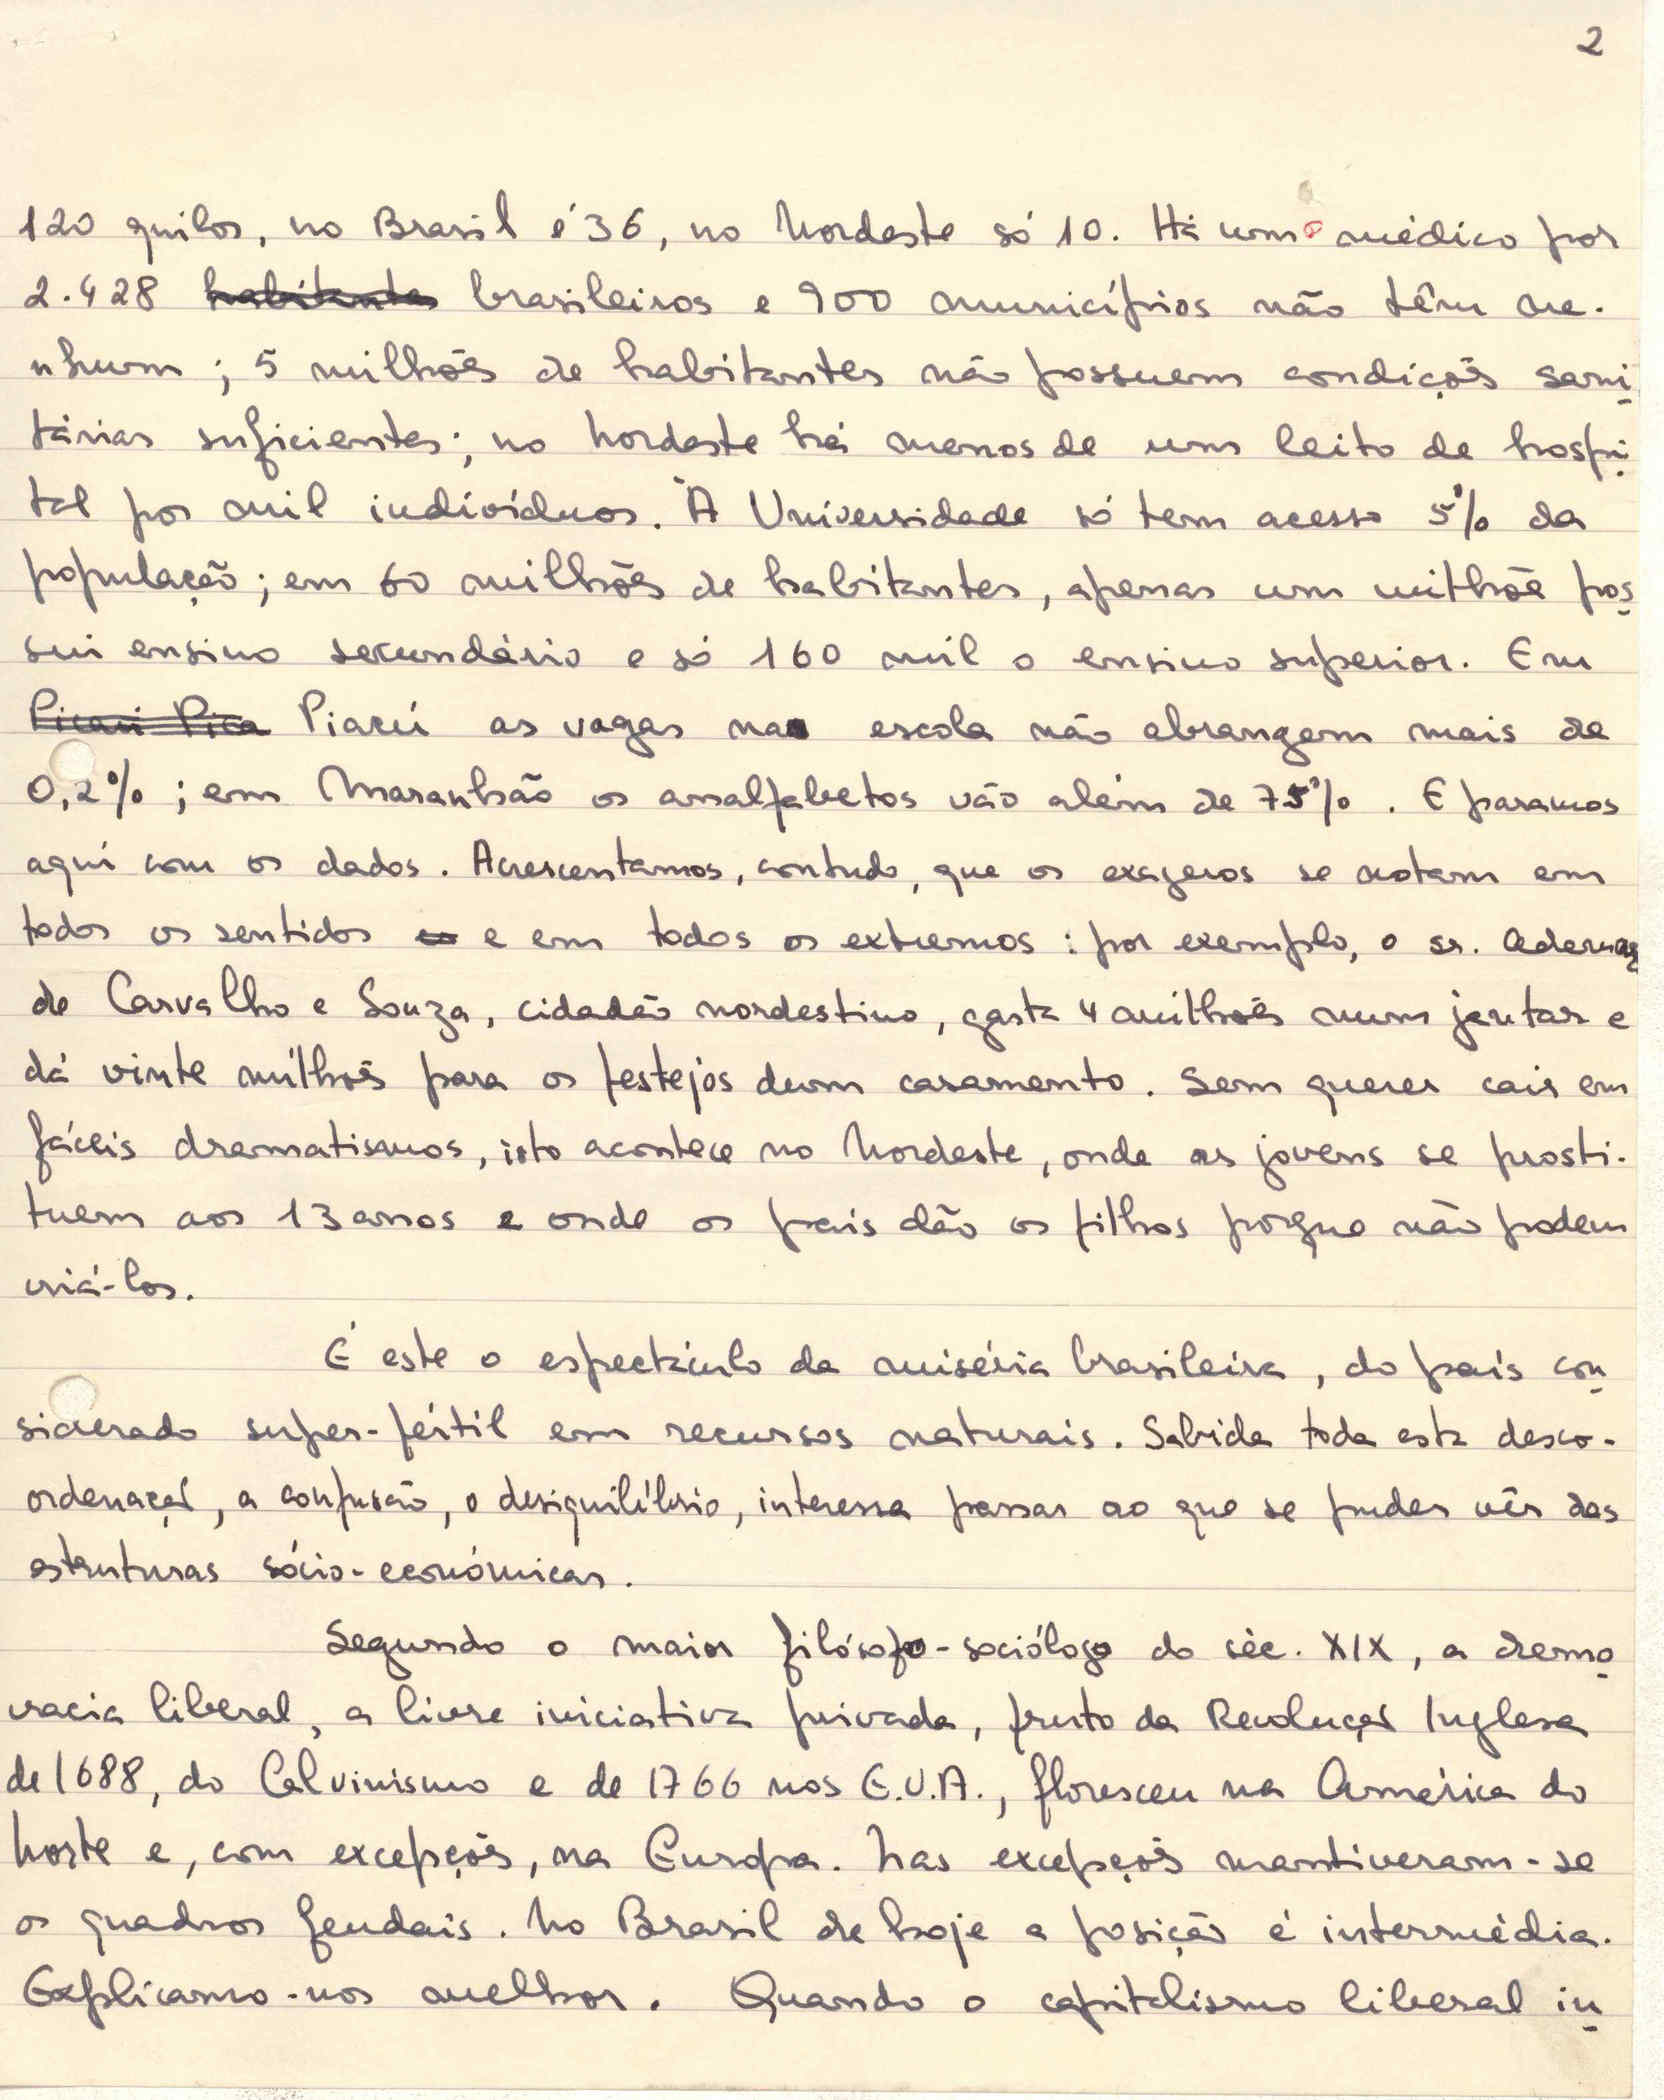 2
120 quilos, no Brasil é 36, no Nordeste só 10. Há um médico por
2.428 habitantes brasileiros e 900 municípios não têm ne-
nhum; 5 milhões de habitantes não possuem condições sani
tárias suficientes; no Nordeste há menos de um leito de hospi
tal por mil indivíduos. À Universidade só tem acesso 5% da
população; em 60 milhões de habitantes, apenas um milhõe pos
sui ensino secundário e só 160 mil o ensino superior. Em
Picaui Pica Piauí as vagas na escola não abrangem mais de
0,2%; em Maranhão os analfabetos vão além de 75%. E paramos
aqui com os dados. Acrescentamos, contudo, que os exageros se notam em
todos os sentidos e em todos os extremos: por exemplo, o sr. Ademar
de Carvalho e Souza, cidadão nordestino, gasta 4 milhões num jantar e
dá vinte milhões para os festejos dum casamento. Sem querer cair em
fáceis dramatismos, isto acontece no Nordeste, onde as jovens se prosti-
tuem aos 13 anos e onde os pais dão os filhos porque não podem
criá-los.
É este o espectáculo da miséria brasileira, do país con
siderado super-fértil em recursos naturais. Sabida toda esta desco-
ordenação, a confusão, o desiquilíbrio, interessa passar ao que se puder vêr das
estruturas sócio-económicas.
Segundo o maior filósofo-sociólogo do séc. XIX, a demo
cracia liberal, a livre iniciativa privada, fruto da Revolução Inglesa
de 1688, do Calvinismo e de 1766 nos E.U.A., floresceu na América do
Norte e, com excepções, na Europa. Nas excepções mantiveram-se
os quadros feudais. No Brasil de hoje a posição é intermédia.
Explicamo-nos melhor. Quando o capitalismo liberal in